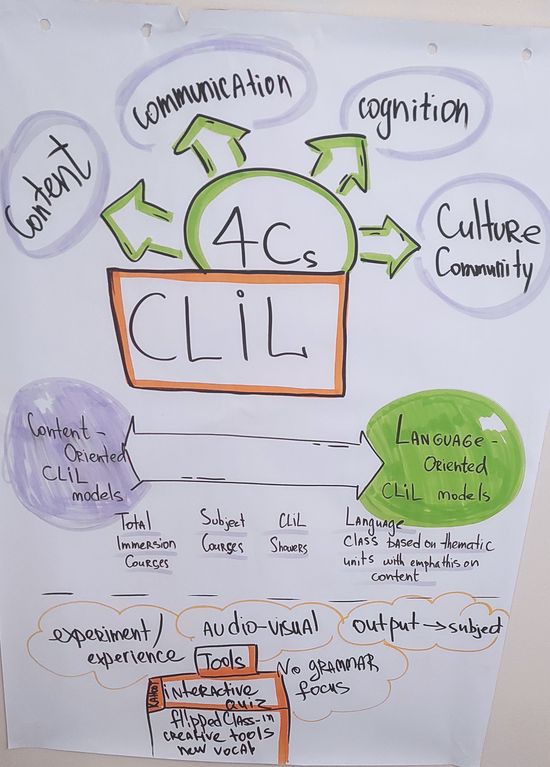 communication
cognition
content
4Cs
Culture
Community
CLiL
Content-
Oriented
CLiL
models
Language-
Oriented
CLiL models
Total
Immersion
Courses
Subject
Courses
CLiL
Showers
Language
class based on thematic
units with emphathis on
content
experiment/
experience
Audio-visual
output → subject
Tools
No grammar
focus
interactive
quiz
flippedclass-in
creative tools
new vocab